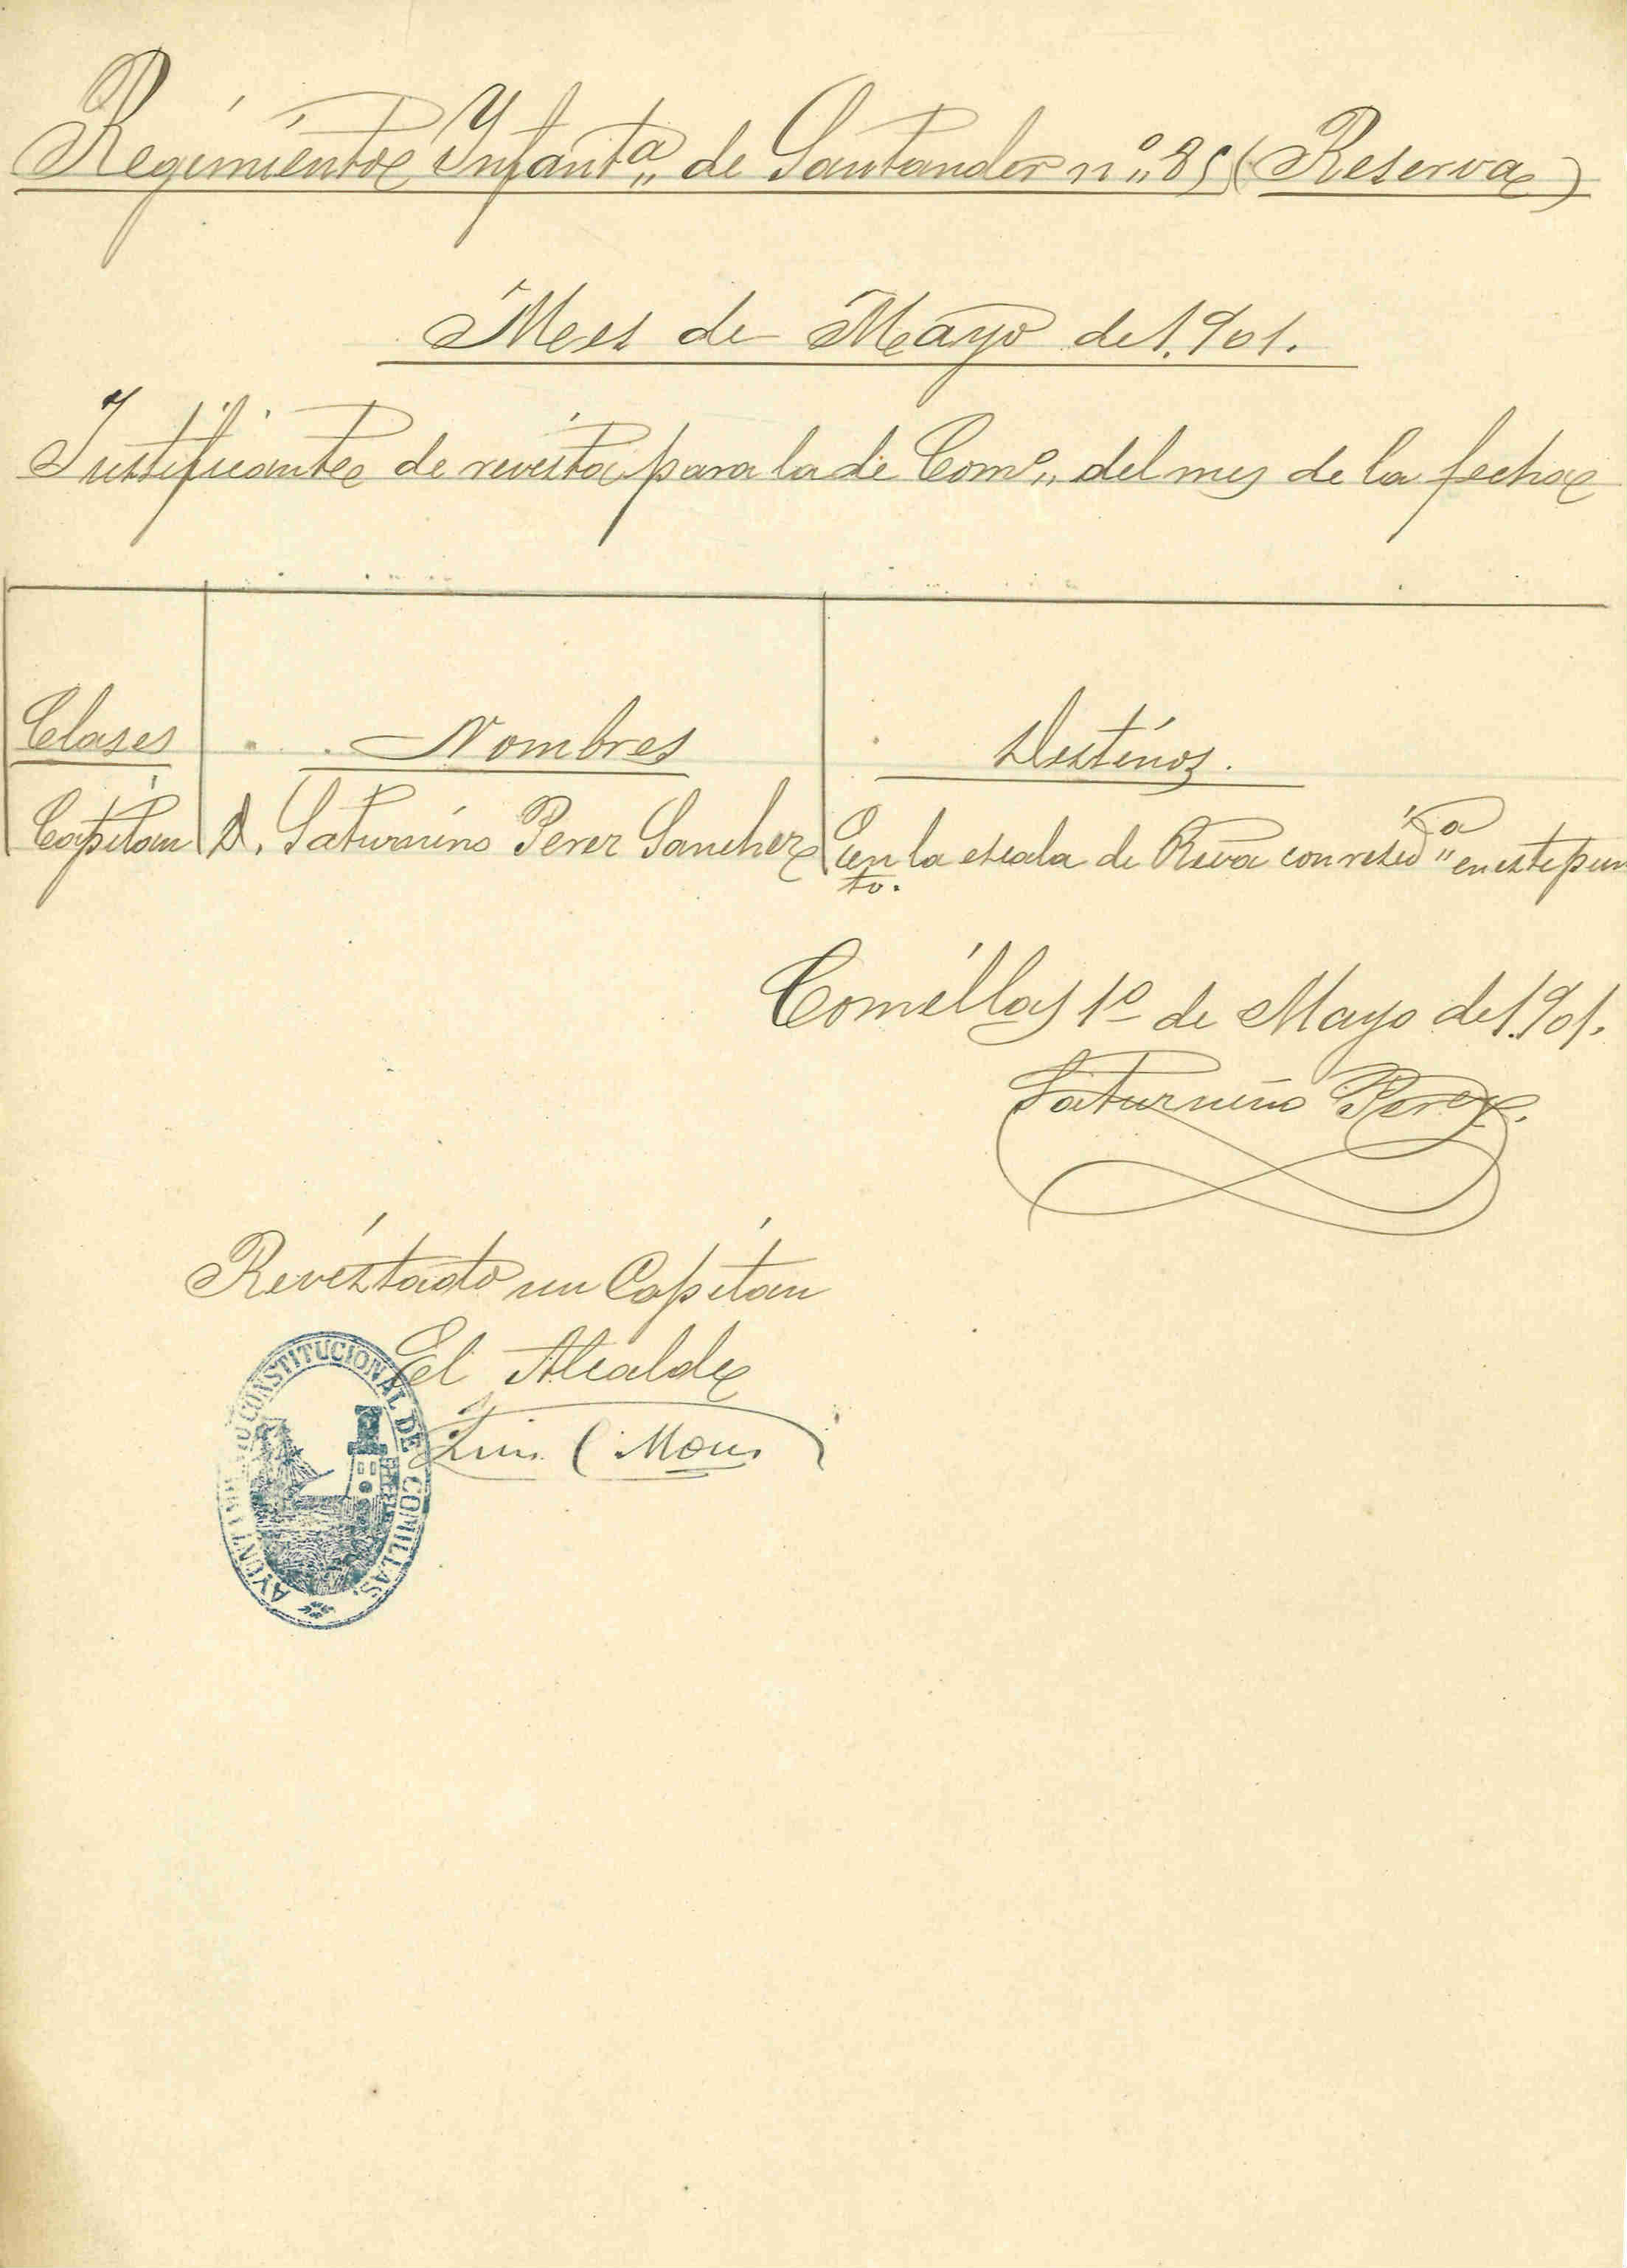 Regimiento Infantª de Santander nº 85 (Reserva)
Mes de Mayo de 1.901.
Justificante de revista para la de Comº del mes de la fecha
Clases Nombres Destinos.
Capitan D. Saturnino Perez Sanchez En la escala de Rva con residª en este pun
to.
Comillas 1º de Mayo de 1.901.
Saturnino Perez.
Revistado un Capitan
El Alcalde
AYUNTAMIENTO CONSTITUCIONAL DE COMILLAS.